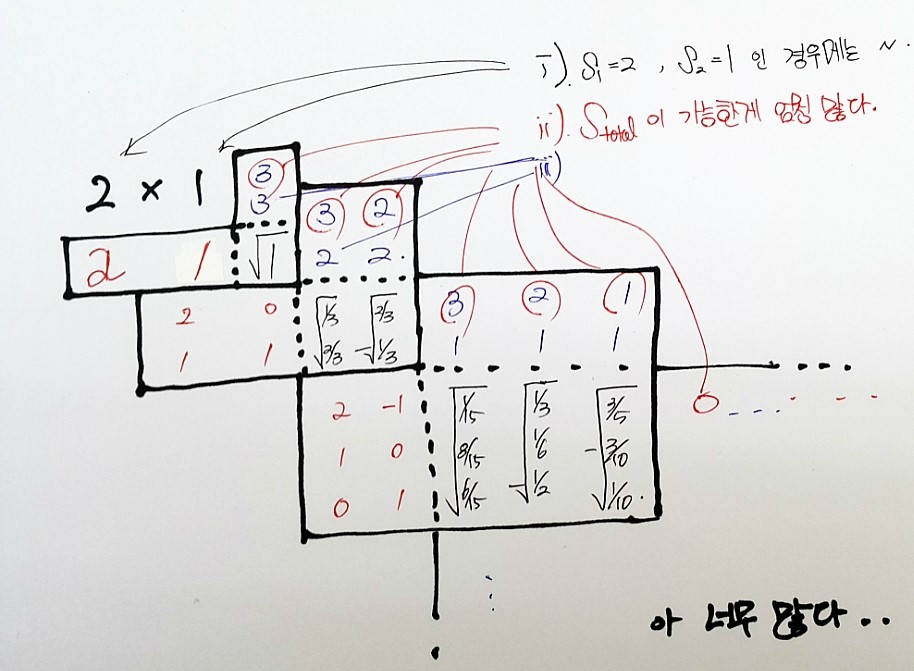 i). S₁=2 , S₂=1 인 경우에는 ~.
ii). S_total 이 가능한게 엄청 많다.
iii)
2 × 1
3
3
3 2
2 2
2 1 √1
2 0 √1/3 √2/3
1 1 √2/3 -√1/3
3 2 1
1 1 1
2 -1 √1/15 √1/3 √3/5
1 0 √8/15 √1/6 -√3/10
0 1 √6/15 -√1/2 √1/10
0
아 너무 많다..